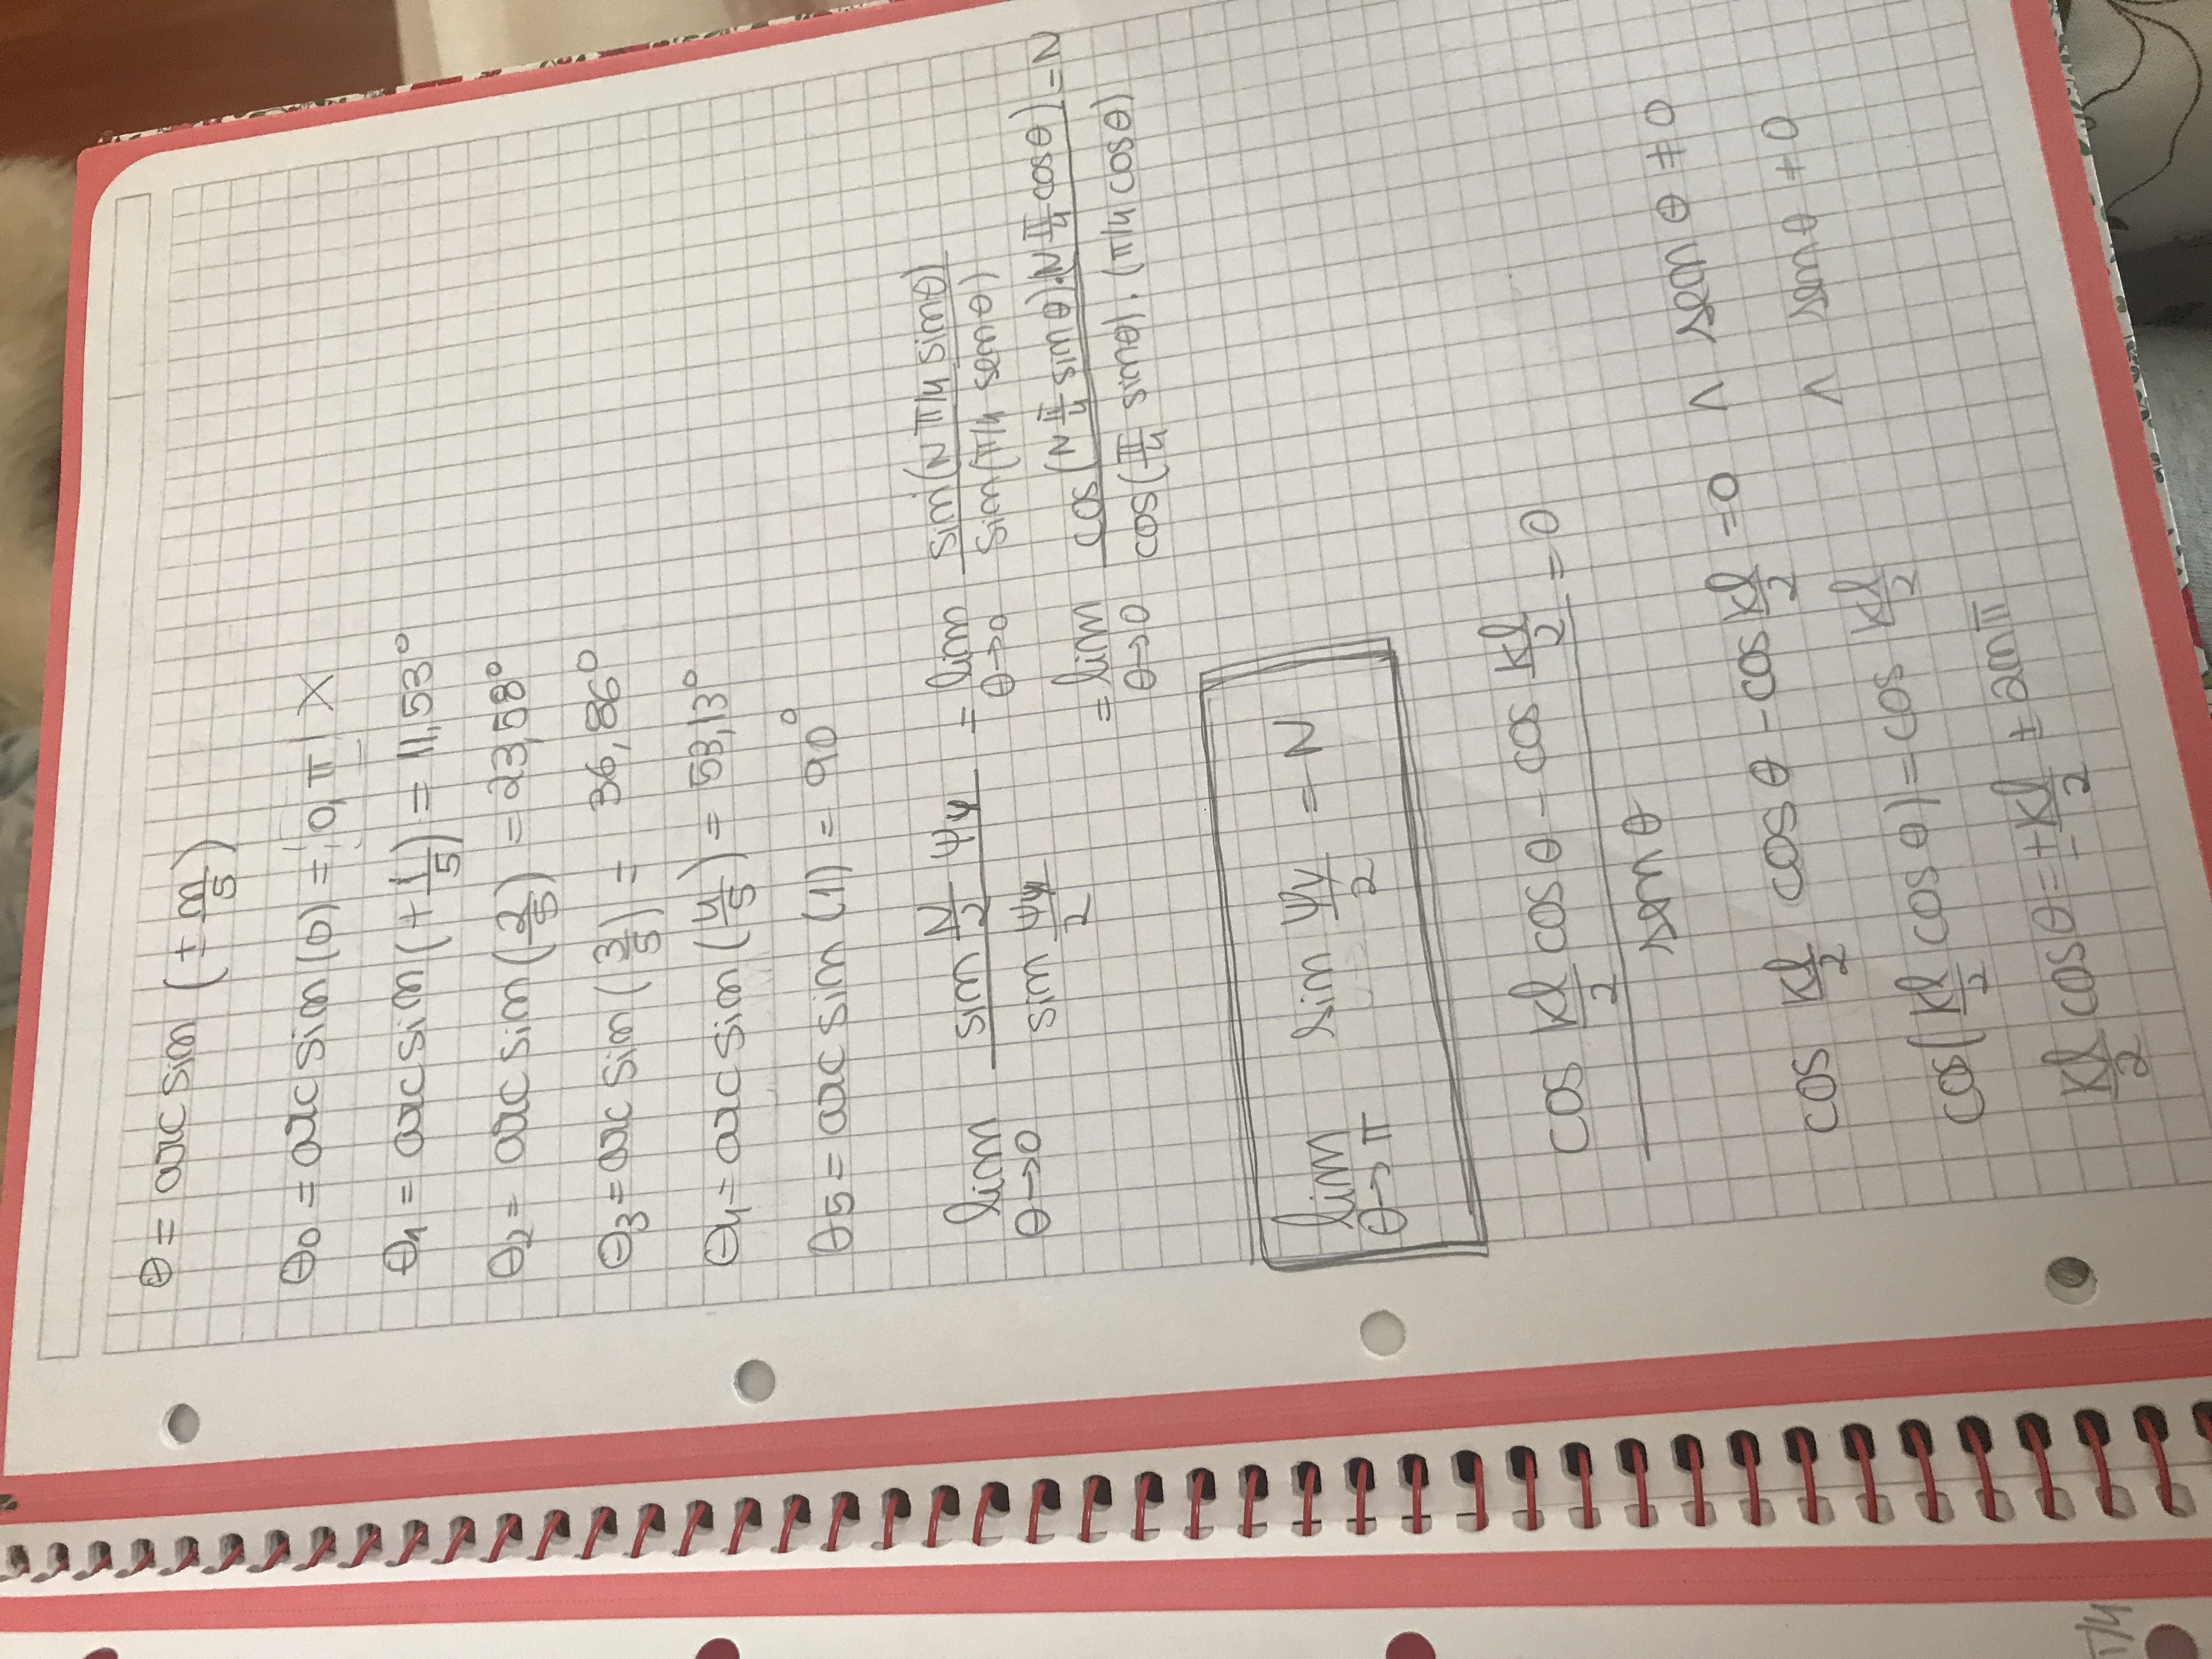 θ = arcsin (± n/5)
θ0 = arcsin(0) = 0, π X
θ1 = arcsin(+1/5) = 11,53°
θ2 = arcsin(2/5) = 23,58°
θ3 = arcsin(3/5) = 36,86°
θ4 = arcsin(4/5) = 53,13°
θ5 = arcsin(1) = 90°
lim θ→0 (sin N/2 ψy)/(sin ψy/2) = lim θ→0 sin(N π/4 sinθ)/sin(π/4 senθ)
= lim θ→0 (cos(N π/4 sinθ).(N π/4 cosθ))/(cos(π/4 sinθ).(π/4 cosθ)) = N
lim θ→π sin ψy/2 = N
(cos kl/2 cos θ - cos kl/2)/(sen θ) = 0
cos kl/2 cos θ - cos kl/2 = 0 ∧ sen θ ≠ 0
cos(kl/2 cos θ) = cos kl/2 ∧ sen θ ≠ 0
kl/2 cos θ = ± kl/2 ± 2nπ
π/4